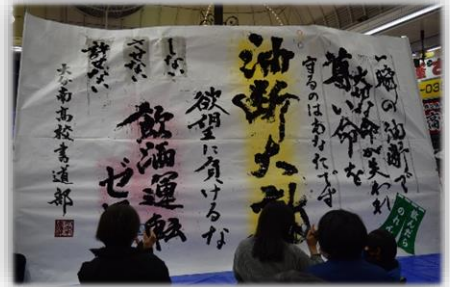 一瞬の油断で
大切な命が失われ
尊い命を
守るのはあなたです
油断大敵
欲望に負けるな
飲酒運転
ゼ
しない
させない
許さない
大分南高校書道部
飲んだら
のれん